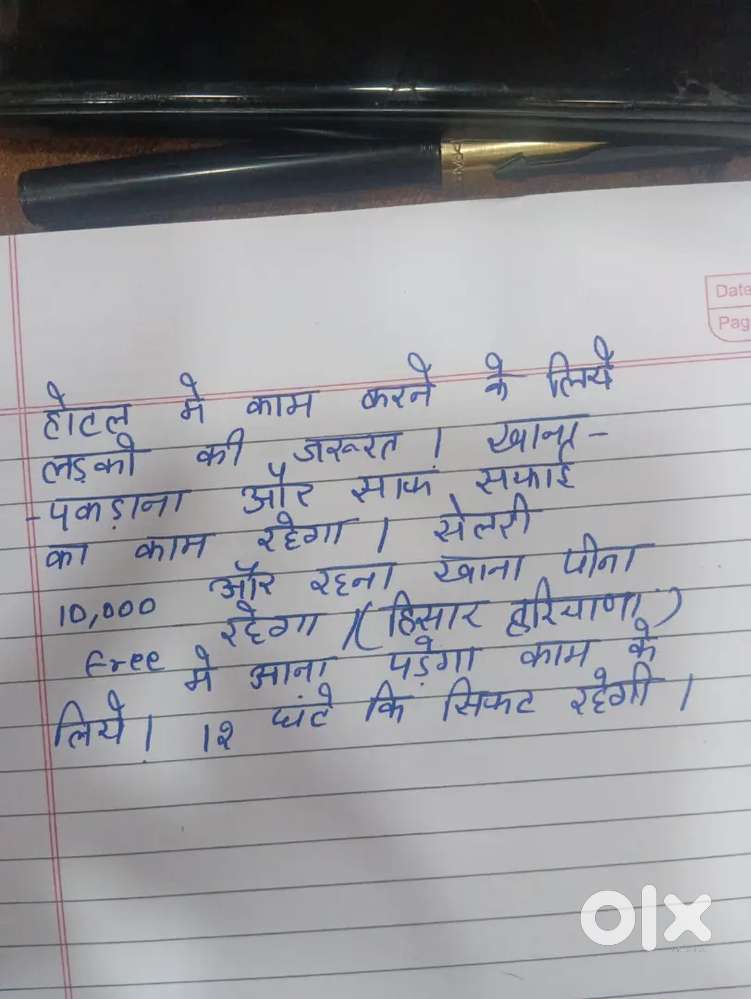 Date
Pag
होटल मे काम करने के लिये
लड़को की जरूरत । खाना -
- पकड़ाना और साफ सफाई
का काम रहेगा । सेलरी
10,000 और रहना खाना पीना
Free रहेगा । (हिसार हरियाणा)
मे आना पड़ेगा काम के
लिये । 12 घंटे कि सिफट रहेगी ।
olx